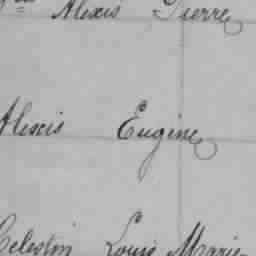 Alexis Pierre
Alexis Eugine
Celestin Louis Marie